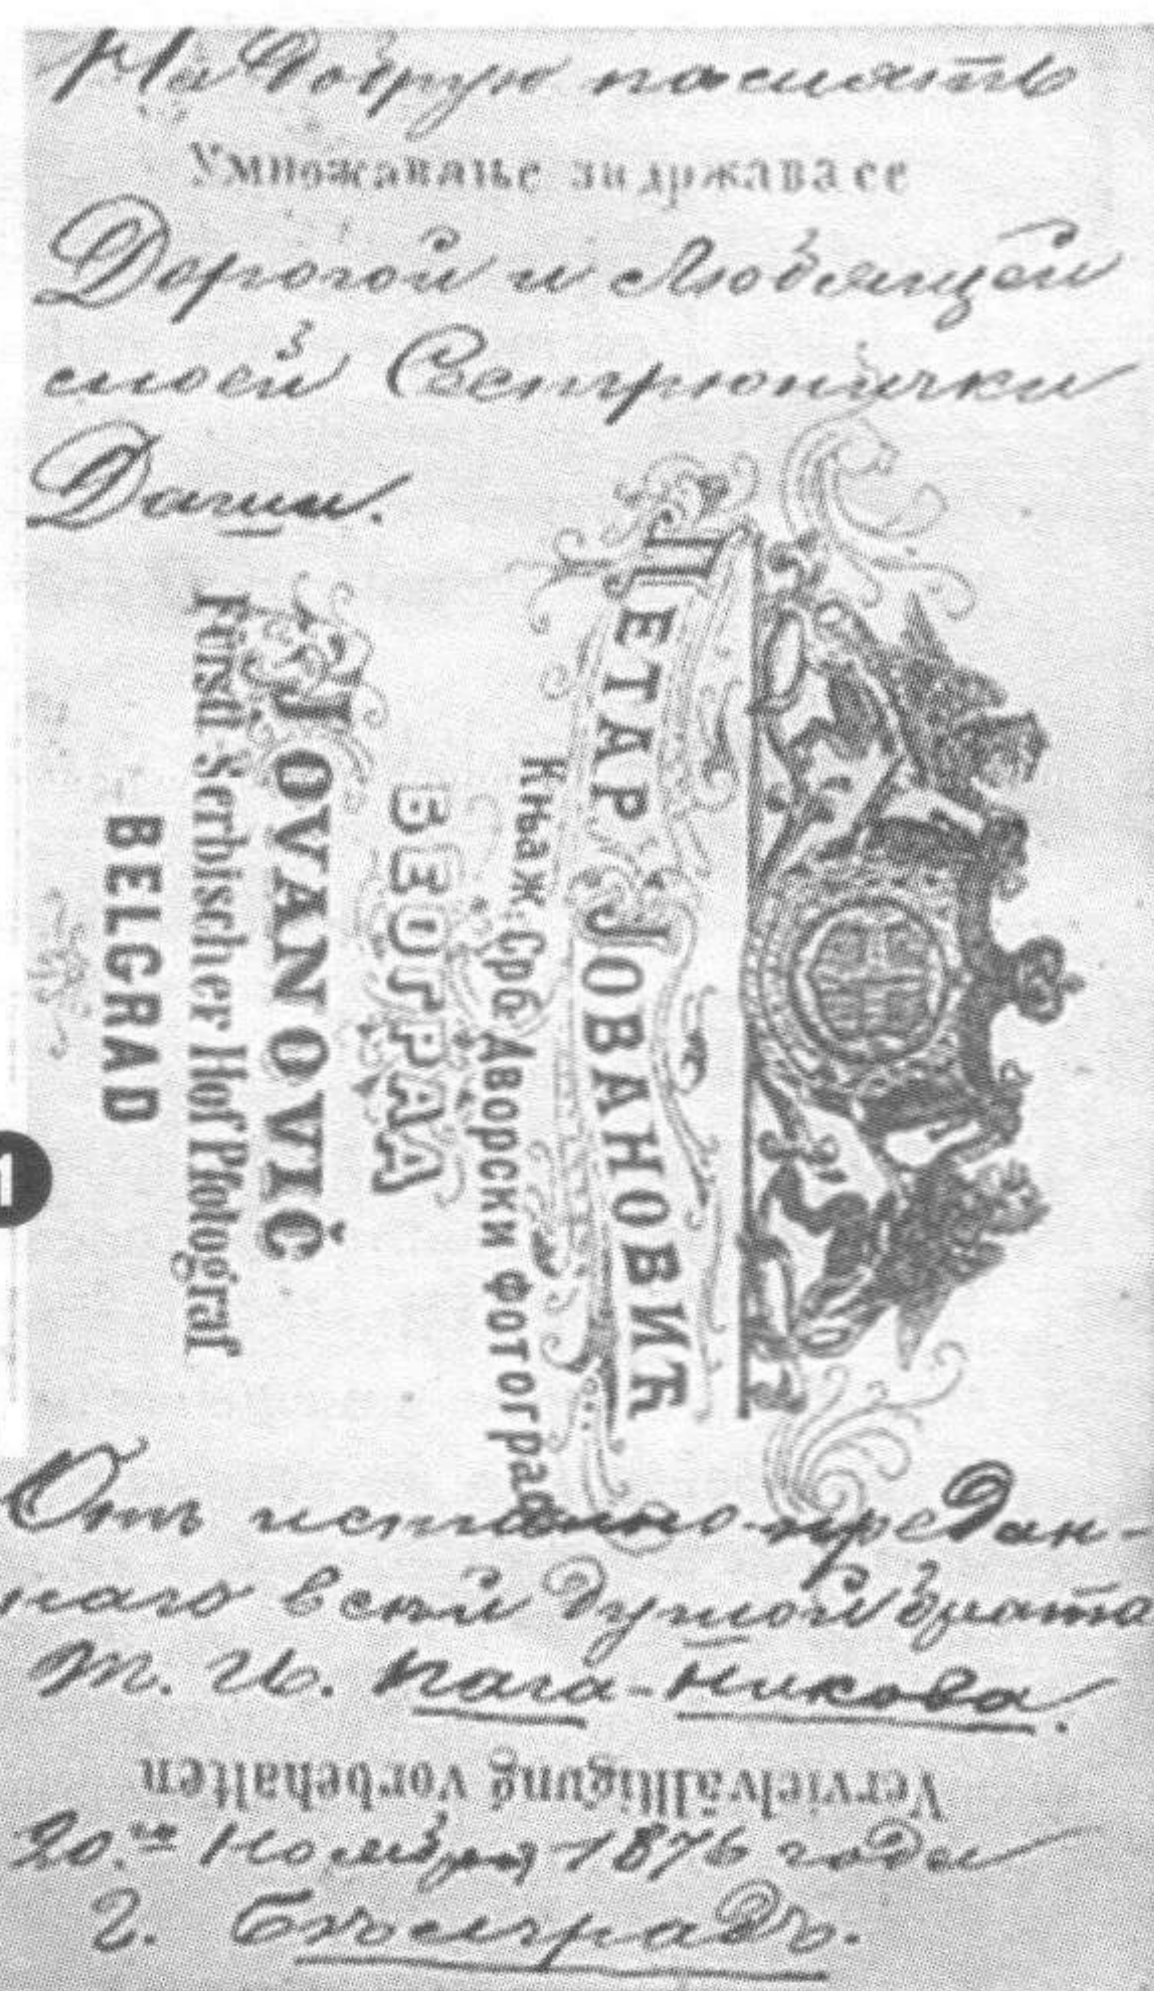 На добрую память
Умножавање задржава се
Дорогой и Любящей
моей Сестрюнички
Даши.
ПЕТАР ЈОВАНОВИЋ
Књаж. Срб. Дворски фотограф
БЕОГРАД
JOVANOVIČ
Fürstl-Serbischer Hof Photograf
BELGRAD
Отъ истинно предан-
наго всей душой брата
Т. И. Кага-Никова.
Vervielvältigung vorbehalten
20.го Ноября 1876 года
Г. Бѣлградъ.
1